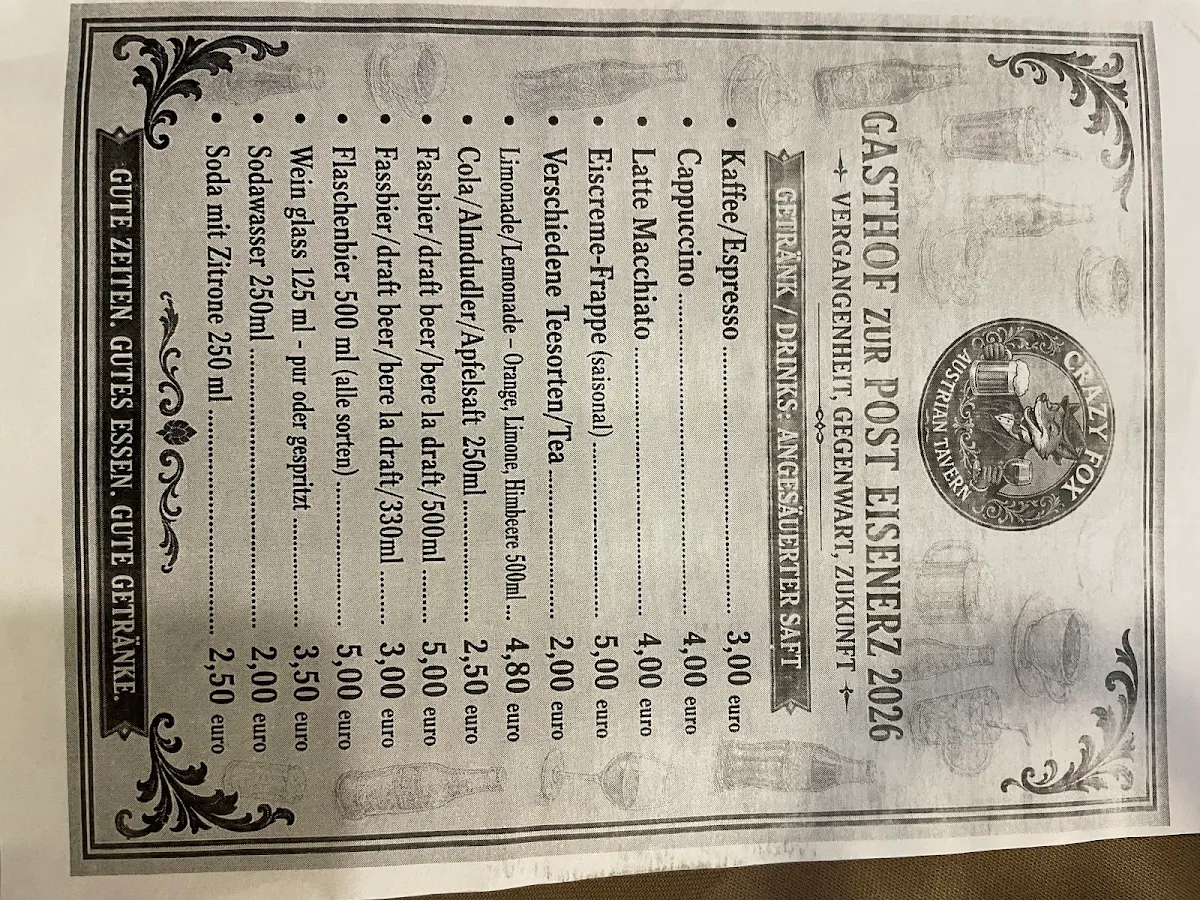 CRAZY FOX
AUSTRIAN TAVERN
GASTHOF ZUR POST EISENERZ 2026
VERGANGENHEIT, GEGENWART, ZUKUNFT
GETRÄNK / DRINKS: ANGESÄUERTER SAFT
• Kaffee/Espresso ........................ 3,00 euro
• Cappuccino ........................ 4,00 euro
• Latte Macchiato ........................ 4,00 euro
• Eiscreme-Frappe (saisonal) ........................ 5,00 euro
• Verschiedene Teesorten/Tea ........................ 2,00 euro
• Limonade/Lemonade - Orange, Limone, Himbeere 500ml... 4,80 euro
• Cola/Almdudler/Apfelsaft 250ml ................ 2,50 euro
• Fassbier/draft beer/bere la draft/500ml ........ 5,00 euro
• Fassbier/draft beer/bere la draft/330ml ........ 3,00 euro
• Flaschenbier 500 ml (alle sorten) .................. 5,00 euro
• Wein glass 125 ml - pur oder gespritzt ............. 3,50 euro
• Sodawasser 250ml ........................ 2,00 euro
• Soda mit Zitrone 250 ml ........................ 2,50 euro
GUTE ZEITEN. GUTES ESSEN. GUTE GETRÄNKE.